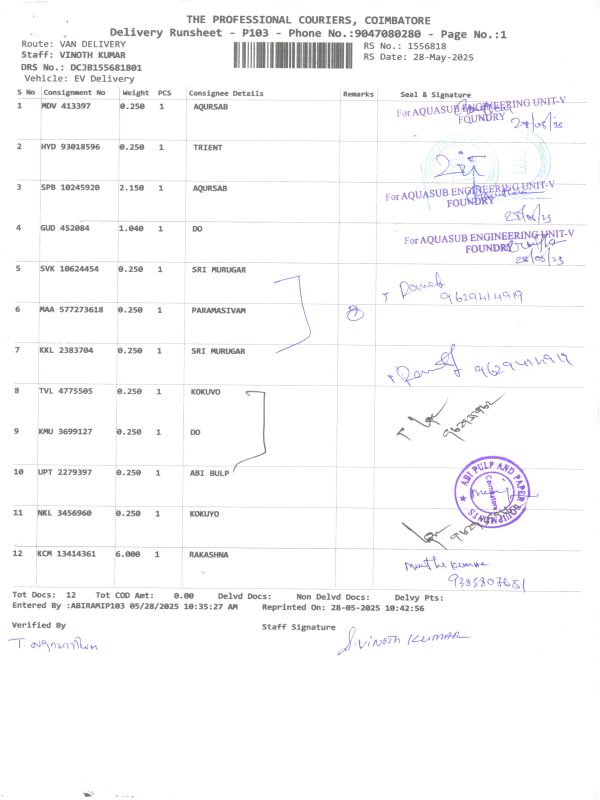 THE PROFESSIONAL COURIERS, COIMBATORE
Delivery Runsheet - P103 - Phone No.:9047080280 - Page No.:1
Route: VAN DELIVERY
RS No.: 1556818
Staff: VINOTH KUMAR
RS Date: 28-May-2025
DRS No.: DCJB155681801
Vehicle: EV Delivery
S No Consignment No Weight PCS Consignee Details Remarks Seal & Signature
1 MDV 413397 0.250 1 AQURSAB
For AQUASUB ENGINEERING UNIT-V
FOUNDRY
2 HYD 93018596 0.250 1 TRIENT
3 SPB 10245920 2.150 1 AQURSAB
For AQUASUB ENGINEERING UNIT-V
FOUNDRY
4 GUD 452084 1.040 1 DO
For AQUASUB ENGINEERING UNIT-V
FOUNDRY
5 SVK 10624454 0.250 1 SRI MURUGAR
9629414919
6 MAA 577273618 0.250 1 PARAMASIVAM
7 KKL 2383704 0.250 1 SRI MURUGAR
9629414919
8 TVL 4775505 0.250 1 KOKUVO
9 KMU 3699127 0.250 1 DO
10 UPT 2279397 0.250 1 ABI BULP
ABI PULP AND PAPER EQUIPMENTS
Coimbatore
11 NKL 3456960 0.250 1 KOKUYO
12 KCM 13414361 6.000 1 RAKASHNA
Tot Docs: 12 Tot COD Amt: 0.00 Delvd Docs: Non Delvd Docs: Delvy Pts:
Entered By :ABIRAMIP103 05/28/2025 10:35:27 AM Reprinted On: 28-05-2025 10:42:56
Verified By
Staff Signature
S.VINOTH KUMAR